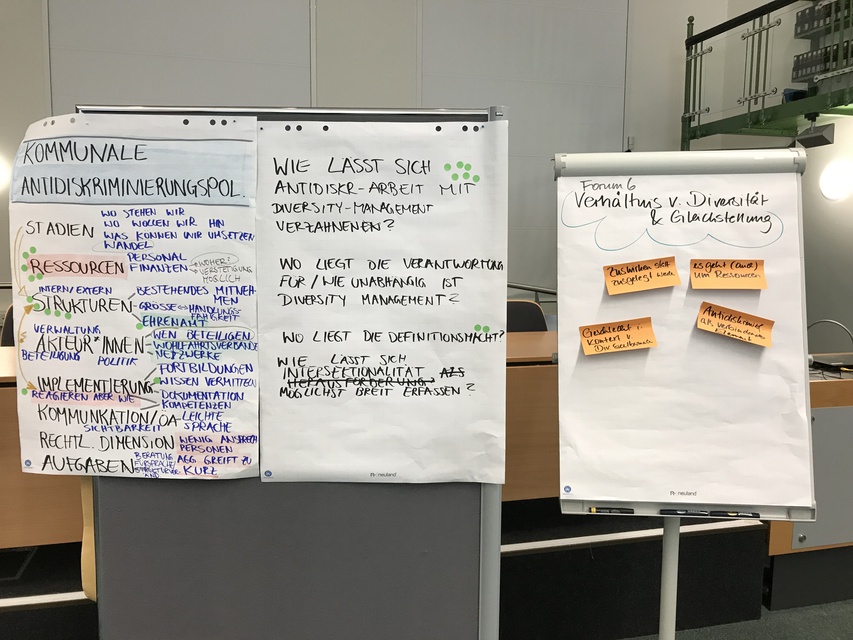 KOMMUNALE
ANTIDISKRIMINIERUNGSPOL.
STADIEN
WO STEHEN WIR
WO WOLLEN WIR HIN
WAS KÖNNEN WIR UMSETZEN
WANDEL
RESSOURCEN
PERSONAL
FINANZEN
WOHER?
VERSTETIGUNG
MÖGLICH
INTERN/EXTERN
STRUKTUREN
BESTEHENDES MITNEH-
MEN
GRÖSSE ↔ HANDLUNGS-
FÄHIGKEIT
EHRENAMT
VERWALTUNG
AKTEUR*INNEN
BETEILIGUNG POLITIK
WEN BETEILIGEN
WOHLFAHRTSVERBÄNDE
NETZWERKE
IMPLEMENTIERUNG
REAGIEREN ABER WIE
FORTBILDUNGEN
WISSEN VERMITTELN
DOKUMENTATION
KOMPETENZEN
KOMMUNKATION/ÖA
SICHTBARKEIT
LEICHTE
SPRACHE
RECHTL. DIMENSION
WENIG ANSPRECH
PERSONEN
AGG GREIFT ZU
KURZ
AUFGABEN
BERATUNG
WIE LÄSST SICH
ANTIDISKR-ARBEIT MIT
DIVERSITY-MANAGEMENT
VERZAHNENEN?
WO LIEGT DIE VERANTWORTUNG
FÜR / WIE UNABHÄNGIG IST
DIVERSITY MANAGEMENT?
WO LIEGT DIE DEFINITIONSMACHT?
WIE LÄSST SICH
INTERSEKTIONALITÄT ALS
HERAUSFORDERUNG
MÖGLICHST BREIT ERFASSEN?
neuland
Forum 6
Verhältnis v. Diversität
& Gleichstellung
es geht (auch)
um Ressourcen
Geschlecht i.
Kontext v.
neuland